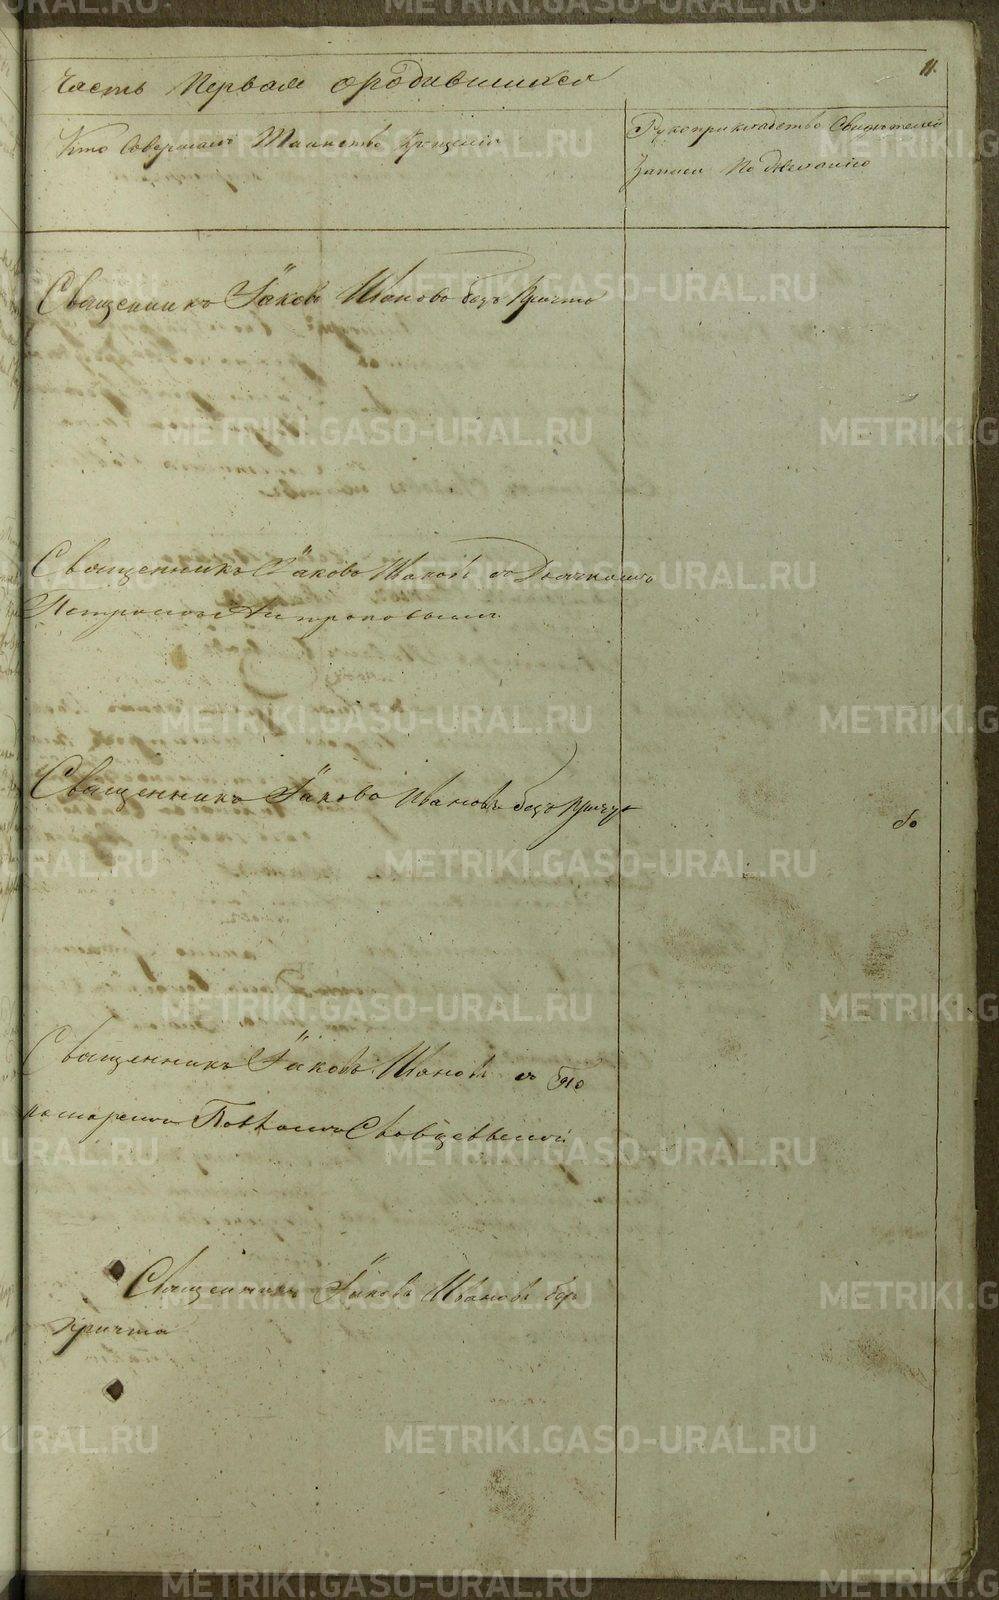 11.
Часть Первая о родившихся
Кто совершалъ Таинство крещенія
Рукоприкладство Свидѣтелей
записи По желанію
Священникъ Іаковъ Ивановъ безъ Причта
Священникъ Іаковъ Ивановъ съ Дьячкомъ
Петромъ
Священникъ Іаковъ Ивановъ безъ Причта
Священникъ Іаковъ Ивановъ съ По
номаремъ
Священникъ Іаковъ Ивановъ безъ
Причта
METRIKI.GASO-URAL.RU